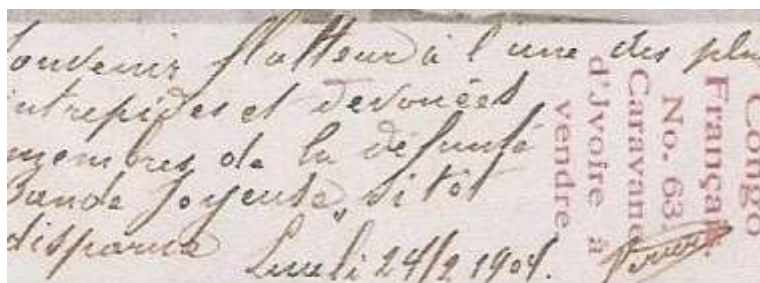 Souvenir flatteur à l'une des plus
intrepides et devouées
membres de la défunte
Bande Joyeuse, sitôt
disparue Lundi 24/2 1904.
Congo
Français.
No. 63.
Caravane
d'Jvoire à
vendre.